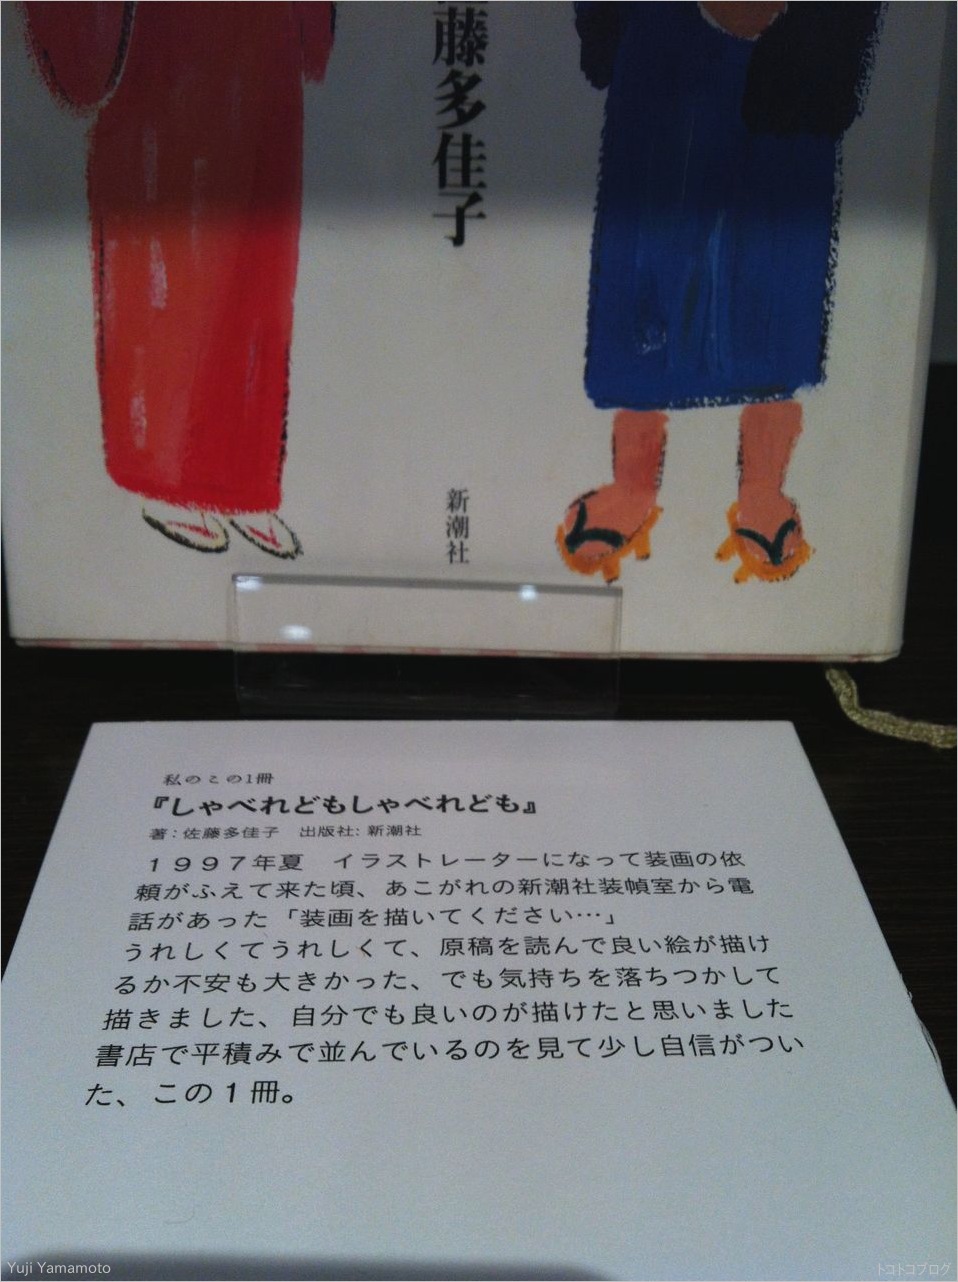 佐藤多佳子
新潮社
私のこの1冊
『しゃべれどもしゃべれども』
著：佐藤多佳子　出版社：新潮社
１９９７年夏　イラストレーターになって装画の依
頼がふえて来た頃、あこがれの新潮社装幀室から電
話があった「装画を描いてください…」
うれしくてうれしくて、原稿を読んで良い絵が描け
るか不安も大きかった、でも気持ちを落ちつかして
描きました、自分でも良いのが描けたと思いました
書店で平積みで並んでいるのを見て少し自信がつい
た、この１冊。
Yuji Yamamoto
トコトコブログ